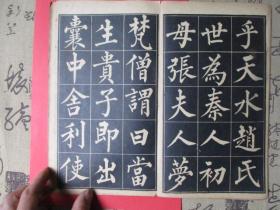 乎天水趙氏
世為秦人初
母張夫人夢
梵僧謂曰當
生貴子即出
囊中舍利使